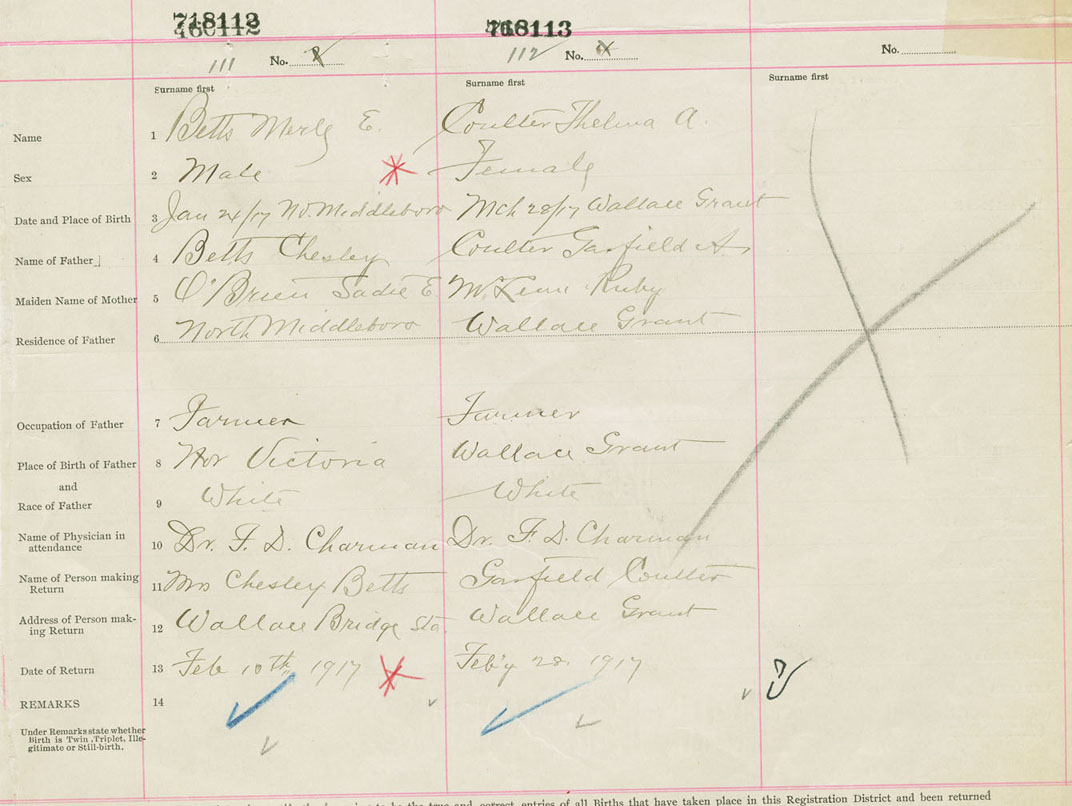 718112 718113
111 No. 112 No. No.
Surname first Surname first Surname first
Name 1 Betts Merle E. Coulter Thelma A.
Sex 2 Male Female
Date and Place of Birth 3 Jan 24/17 No. Middleboro Mch 28/17 Wallace Grant
Name of Father 4 Betts Chesley Coulter Garfield A
Maiden Name of Mother 5 O'Brien Sadie E. Ruby
Residence of Father 6 North Middleboro Wallace Grant
Occupation of Father 7 Farmer Farmer
Place of Birth of Father 8 Victoria Wallace Grant
and
Race of Father 9 White White
Name of Physician in
attendance 10 Dr. F. D. Charman Dr. F. D. Charman
Name of Person making
Return 11 Mrs Chesley Betts Garfield Coulter
Address of Person mak-
ing Return 12 Wallace Bridge Sta. Wallace Grant
Date of Return 13 Feb 10th 1917 Feb'y 28. 1917
REMARKS 14
Under Remarks state whether
Birth is Twin, Triplet, Ille-
gitimate or Still-birth.
to be the true and correct entries of all Births that have taken place in this Registration District and been returned